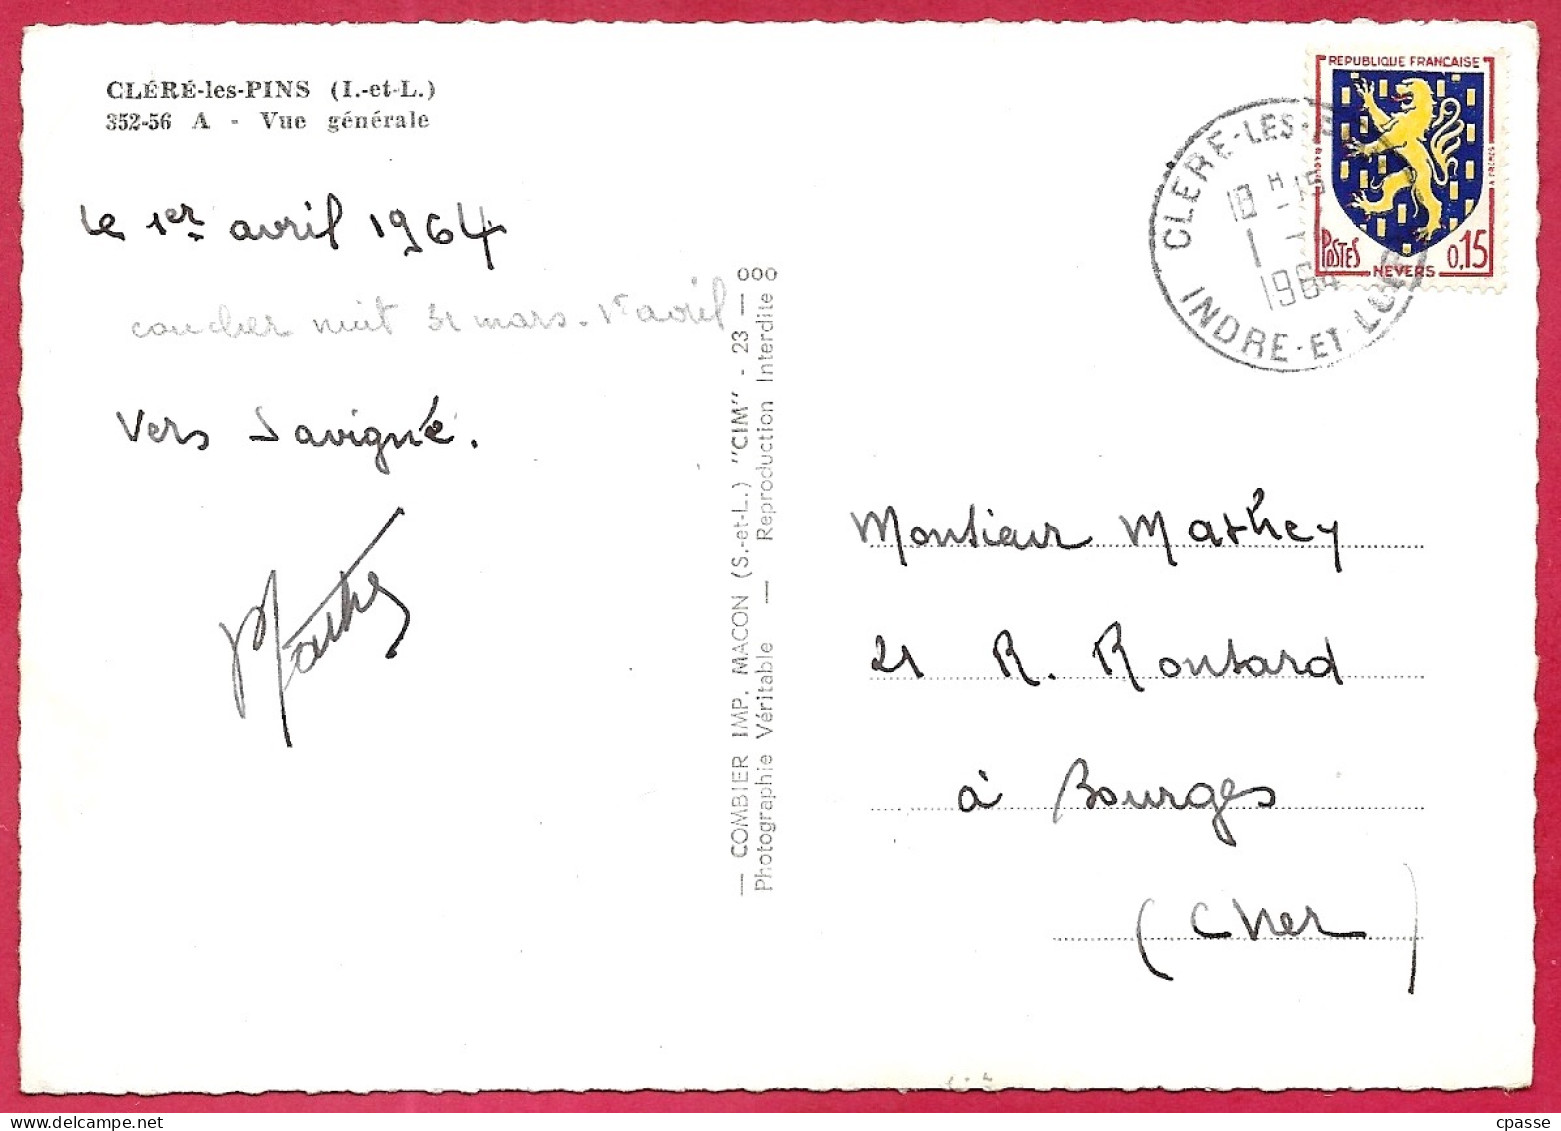 CLÉRÉ-les-PINS (I.-et-L.)
352-56 A - Vue générale
le 1er avril 1964
coucher nuit 31 mars - 1r avril
Vers Savigné.
Mathey
— COMBIER IMP. MACON (S.-et-L.) "CIM" - 23 — 000
Photographie Véritable — Reproduction Interdite
REPUBLIQUE FRANCAISE
POSTES
NEVERS
0,15
CLERE-LES-
18 H 15
1 -
1964
INDRE-ET-LOIRE
Monsieur Mathey
21 R. Ronsard
à Bourges
(Cher)
cpasse